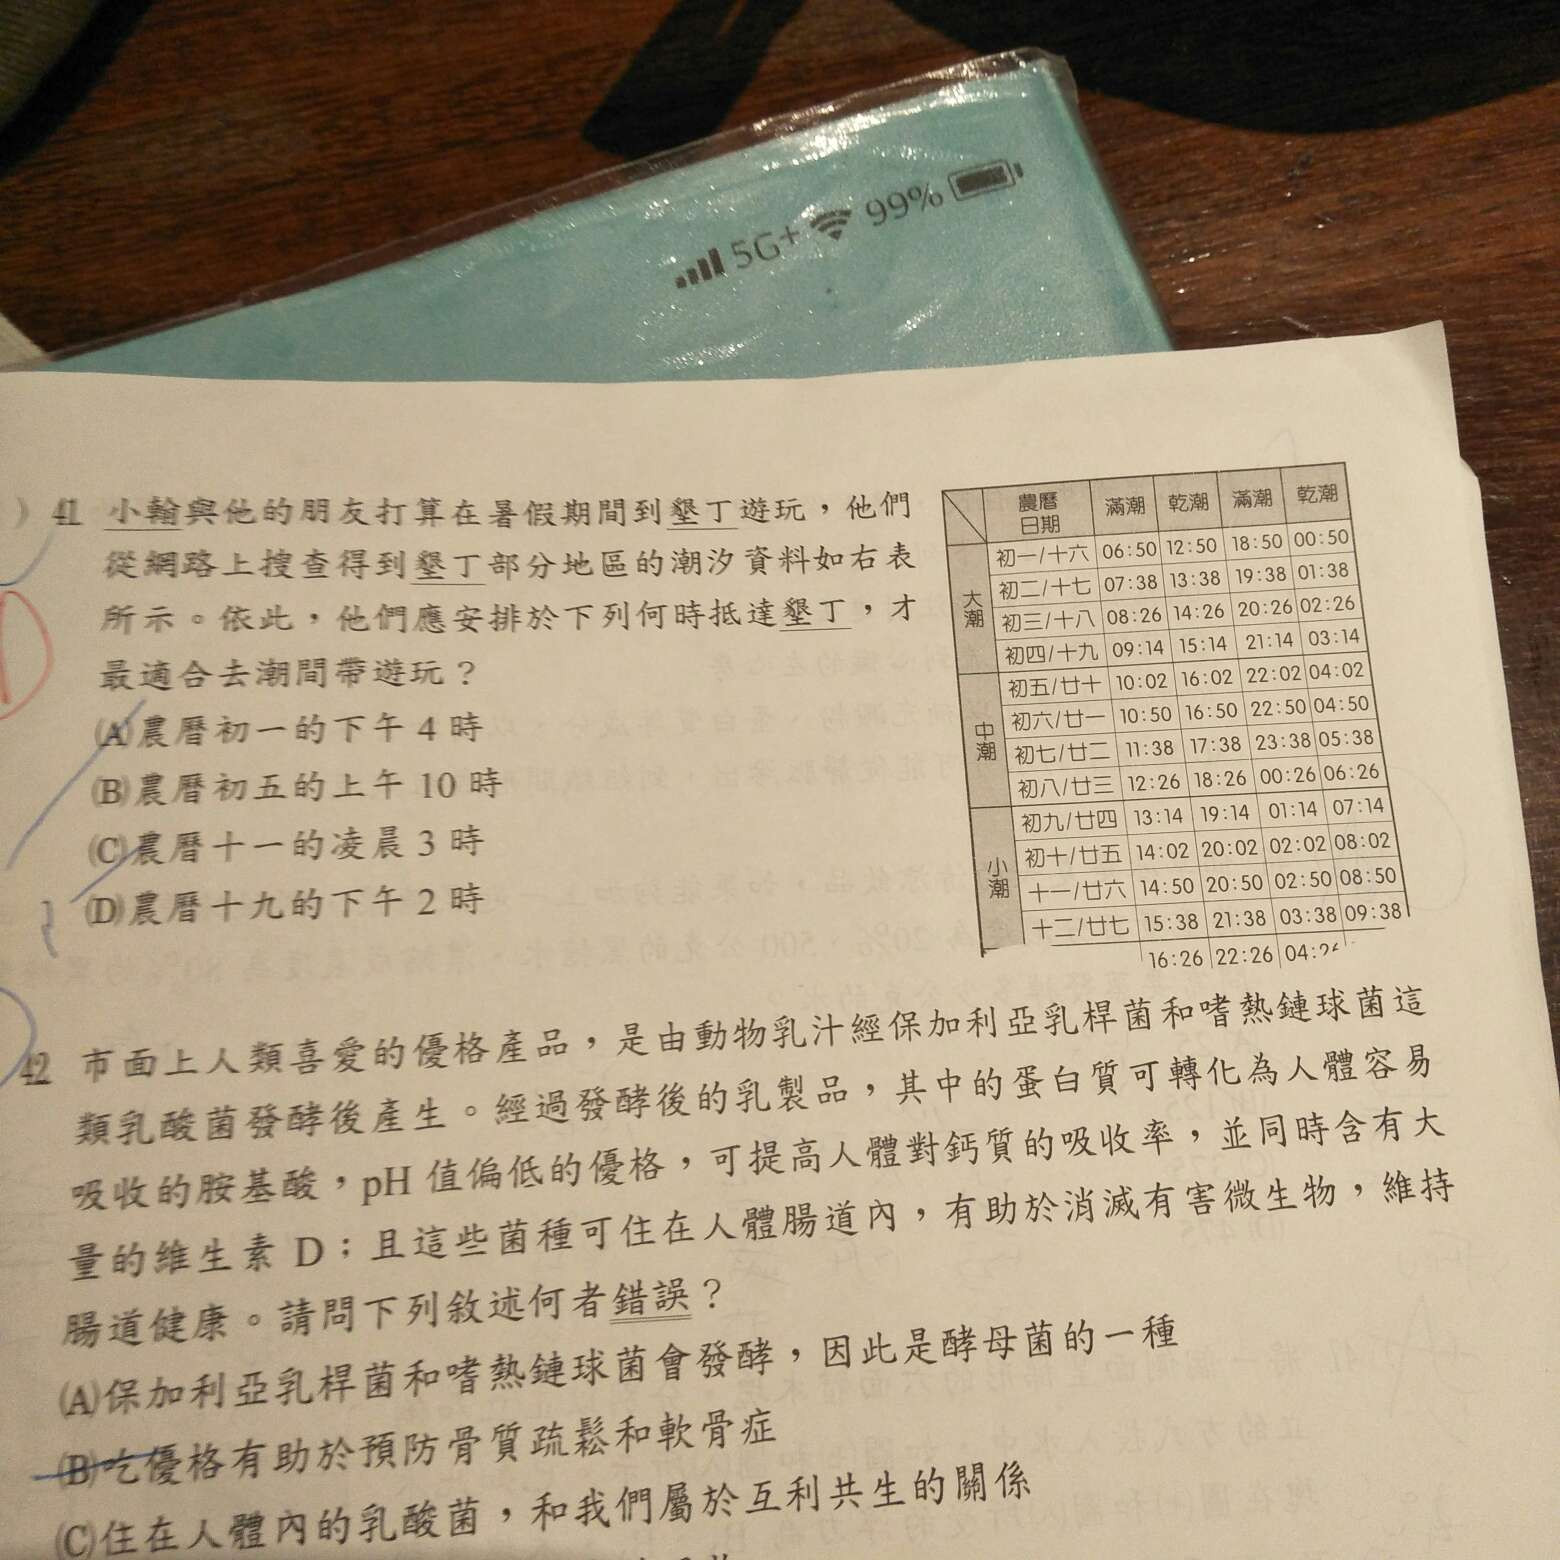 5G+ 99%
41 小翰與他的朋友打算在暑假期間到墾丁遊玩，他們
從網路上搜查得到墾丁部分地區的潮汐資料如右表
所示。依此，他們應安排於下列何時抵達墾丁，才
最適合去潮間帶遊玩？
(A)農曆初一的下午 4 時
(B)農曆初五的上午 10 時
(C)農曆十一的凌晨 3 時
(D)農曆十九的下午 2 時
農曆日期 滿潮 乾潮 滿潮 乾潮
大潮
初一/十六 06:50 12:50 18:50 00:50
初二/十七 07:38 13:38 19:38 01:38
初三/十八 08:26 14:26 20:26 02:26
初四/十九 09:14 15:14 21:14 03:14
中潮
初五/廿十 10:02 16:02 22:02 04:02
初六/廿一 10:50 16:50 22:50 04:50
初七/廿二 11:38 17:38 23:38 05:38
初八/廿三 12:26 18:26 00:26 06:26
小潮
初九/廿四 13:14 19:14 01:14 07:14
初十/廿五 14:02 20:02 02:02 08:02
十一/廿六 14:50 20:50 02:50 08:50
十二/廿七 15:38 21:38 03:38 09:38
16:26 22:26
42 市面上人類喜愛的優格產品，是由動物乳汁經保加利亞乳桿菌和嗜熱鏈球菌這
類乳酸菌發酵後產生。經過發酵後的乳製品，其中的蛋白質可轉化為人體容易
吸收的胺基酸，pH 值偏低的優格，可提高人體對鈣質的吸收率，並同時含有大
量的維生素 D；且這些菌種可住在人體腸道內，有助於消滅有害微生物，維持
腸道健康。請問下列敘述何者錯誤？
(A)保加利亞乳桿菌和嗜熱鏈球菌會發酵，因此是酵母菌的一種
(B)吃優格有助於預防骨質疏鬆和軟骨症
(C)住在人體內的乳酸菌，和我們屬於互利共生的關係